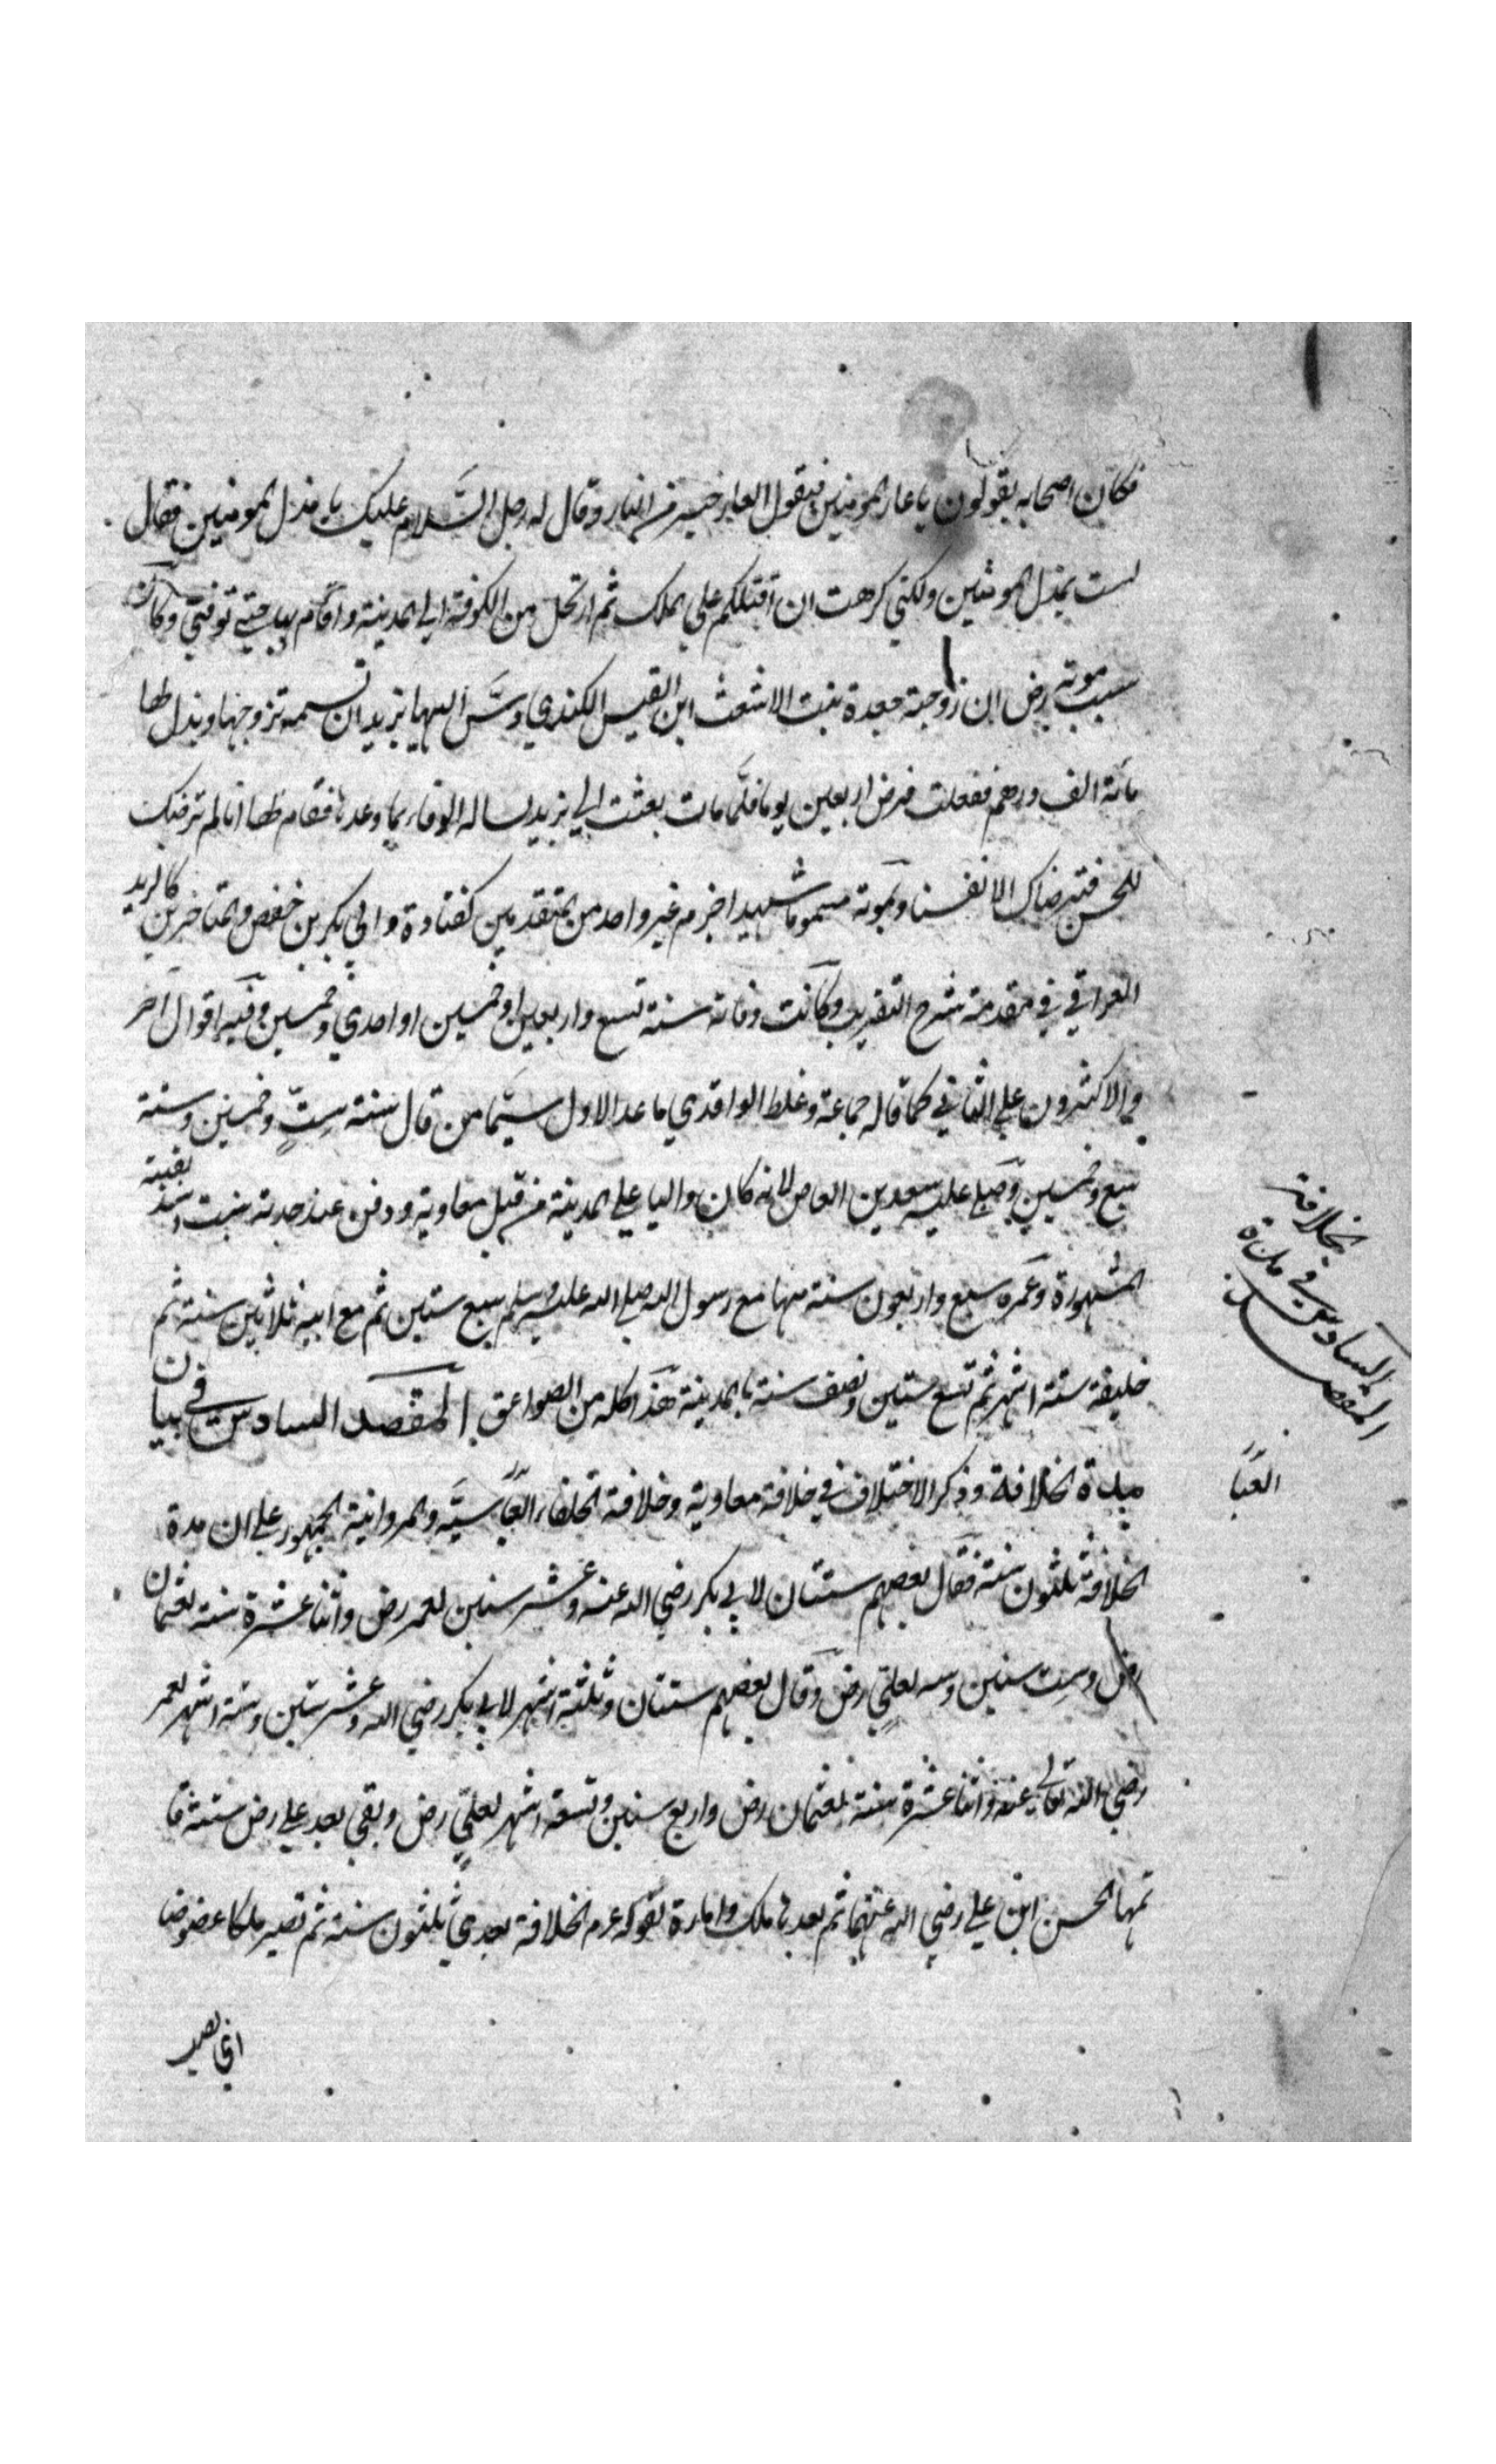 فكان اصحابه يقولون يا عار المومنين فيقول العار خير من النار وقال له رجل السَّلام عليك يا مذل المومنين فقال
لست بمذل المومنين ولكني كرهت ان اقتلكم على الملك ثم ارتحل من الكوفة الي المدينة واقام بها حتى توفي وكان
سبب موته رض ان زوجته جعدة بنت الاشعث ابن القيس الكندي دسَّ اليها يزيد ان تسمه تزوجها وبذل لها
مائة الف درهم ففعلت فمرض اربعين يوما فلمَّا مات بعثت الي يزيد يساله الوفاء بما وعدها فقام لها انا لم نرضك
للحسن فنترضاك لانفسنا وبموته مسموما شهيدا جزم غير واحد من المتقدمين كقتادة وابي بكر بن حفص والمتاخرين كالزيد
العراقي في مقدمة شرح التقريب وكانت وفاته سنة تسع واربعين او خمسين او احدي وخمسين وفيه اقوال آخر
والاكثرون على الثاني كما قاله جماعة وغلط الواقدي ما عدا الاول سيَّما من قال سنة ستٍّ وخمسين وسنة
سبع وخمسين وصلى عليه سعد بن العاص لانه كان واليا على المدينة من قبل معاوية ودفن عند جدته بنت اسد بقبته
المشهورة وعمره سبع واربعون سنة منها مع رسول الله صلى الله عليه وسلم سبع سنين ثم مع ابيه ثلاثين سنة ثم
خليفة ستة اشهر ثم تسع سنين ونصف سنة بالمدينة هذا كله من الصواعق المقصد السادس في بيان
مدة الخلافة وذكر الاختلاف في خلافة معاوية وخلافة الخلفاء العبَّاسيَّة والمروانية الجمهور على ان مدة
الخلافة ثلثون سنة فقال بعضهم سنتان لابي بكر رضي الله عنه وعشر سنين لعمر رض واثنا عشرة سنة لعثمان
رض وست سنين وسه لعلي رض وقال بعضهم سنتان وثلثة اشهر لابي بكر رضي الله وعشر سنين وستة اشهر لعمر
رضي الله تعالى عنه واثنا عشرة سنة لعثمان رض واربع سنين وتسعة اشهر لعليٍّ رض وبقي بعد علي رض ستة فا
تمها الحسن ابن علي رضي الله عنهما ثم بعدها ملك وامارة لقوله عرم الخلافة بعدي ثلثون سنة ثم تصير ملكا عضوضا
المقصد السادس في مدة الخلافة
العبَّا
اي نصير